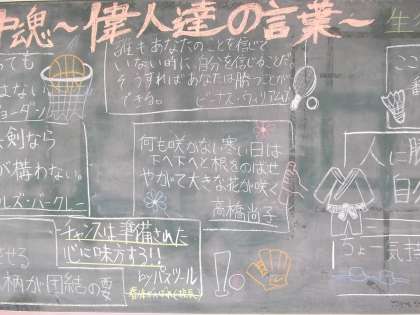 魂～偉人達の言葉～
生
誰もあなたのことを信じて
いない時に、自分を信じることだ。
そうすればあなたは勝つことが
できる。
ビーナス・ウィリアムズ
っても
はない
ジョーダン
剣なら
が構わない。
ルズ・バークレー
何も咲かない寒い日は
下へ下へと根をのばせ
やがて大きな花が咲く
高橋尚子
ここ
人に勝
自
チャンスは準備された
心に味方する!!
byパスツール
させる
柄が団結の要
ちょー気持